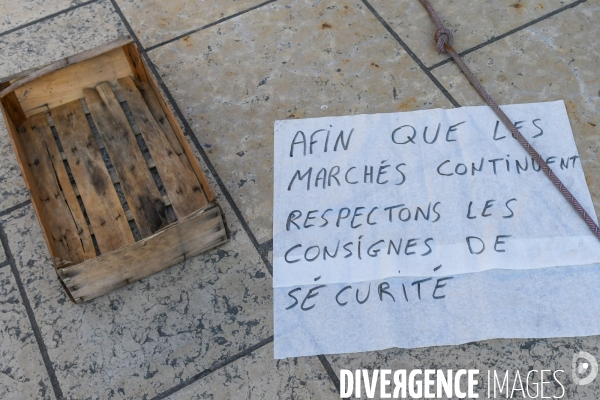 AFIN QUE LES
MARCHÉS CONTINUENT
RESPECTONS LES
CONSIGNES DE
SÉCURITÉ
DIVERGENCE IMAGES .COM